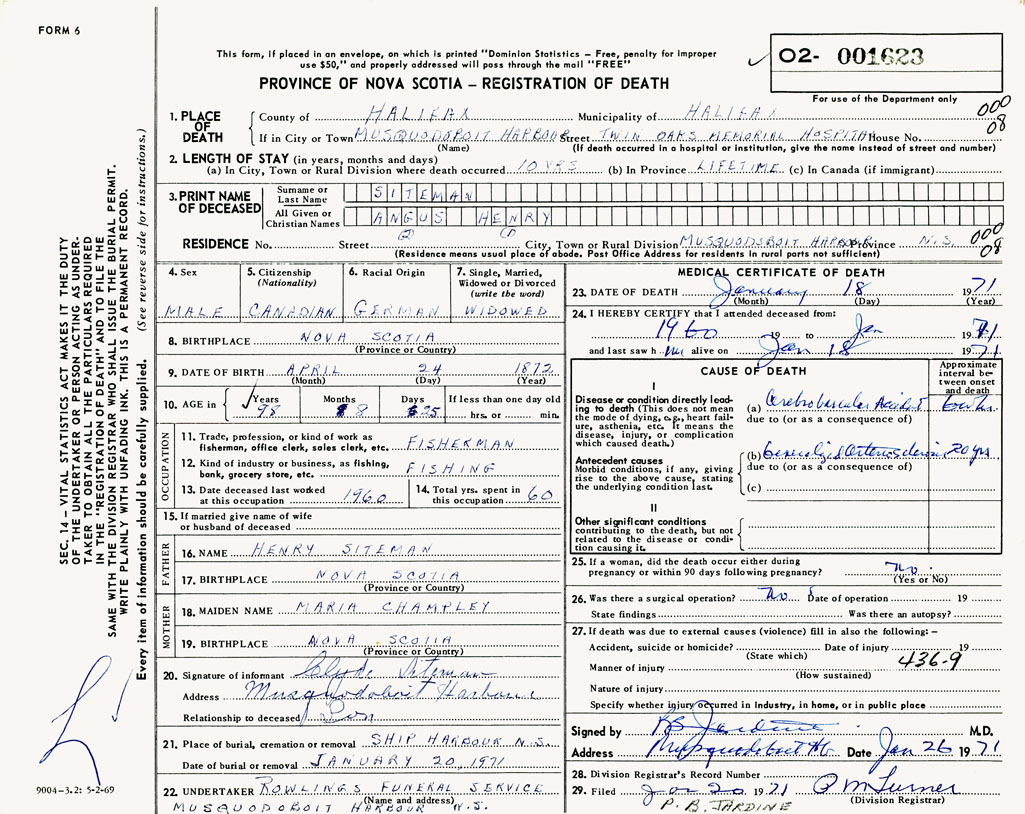 FORM 6
This form, if placed in an envelope, on which is printed "Dominion Statistics – Free, penalty for improper
use $50," and properly addressed will pass through the mail "FREE"
PROVINCE OF NOVA SCOTIA – REGISTRATION OF DEATH
02- 001623
For use of the Department only
000
08
1. PLACE OF DEATH
County of HALIFAX Municipality of HALIFAX
If in City or Town MUSQUODOBOIT HARBOUR Street TWIN OAKS MEMORIAL HOSPITAL House No.
(Name) (If death occurred in a hospital or institution, give the name instead of street and number)
2. LENGTH OF STAY (in years, months and days)
(a) In City, Town or Rural Division where death occurred 10 YRS (b) In Province LIFETIME (c) In Canada (if immigrant)
3. PRINT NAME OF DECEASED
Surname or Last Name SITEMAN
All Given or Christian Names ANGUS HENRY
(2) (1)
RESIDENCE No. Street City, Town or Rural Division MUSQUODOBOIT HARBOUR Province N.S.
000
08
(Residence means usual place of abode. Post Office Address for residents in rural parts not sufficient)
4. Sex
MALE
5. Citizenship
(Nationality)
CANADIAN
6. Racial Origin
GERMAN
7. Single, Married,
Widowed or Divorced
(write the word)
WIDOWED
8. BIRTHPLACE NOVA SCOTIA
(Province or Country)
9. DATE OF BIRTH APRIL 24 1872
(Month) (Day) (Year)
10. AGE in Years 98 Months 8 Days 25 If less than one day old
hrs. or min.
OCCUPATION
11. Trade, profession, or kind of work as
fisherman, office clerk, sales clerk, etc. FISHERMAN
12. Kind of industry or business, as fishing,
bank, grocery store, etc. FISHING
13. Date deceased last worked
at this occupation 1960
14. Total yrs. spent in
this occupation 60
15. If married give name of wife
or husband of deceased
FATHER
16. NAME HENRY SITEMAN
17. BIRTHPLACE NOVA SCOTIA
(Province or Country)
MOTHER
18. MAIDEN NAME MARIA CHAMPLEY
19. BIRTHPLACE NOVA SCOTIA
(Province or Country)
20. Signature of informant Clyde Siteman
Address Musquodoboit Harbour
Relationship to deceased Son
21. Place of burial, cremation or removal SHIP HARBOUR N.S.
Date of burial or removal JANUARY 20, 1971
22. UNDERTAKER ROWLINGS FUNERAL SERVICE
(Name and address)
MUSQUODOBOIT HARBOUR N.S.
MEDICAL CERTIFICATE OF DEATH
23. DATE OF DEATH January 18 1971
(Month) (Day) (Year)
24. I HEREBY CERTIFY that I attended deceased from:
1960 19 to Jan 1971
and last saw him alive on Jan 18 1971
CAUSE OF DEATH
Approximate
interval be-
tween onset
and death
I
Disease or condition directly lead-
ing to death (This does not mean
the mode of dying, e.g., heart fail-
ure, asthenia, etc. It means the
disease, injury, or complication
which caused death.)
(a) Cerebrovascular Accident
due to (or as a consequence of)
Antecedent causes
Morbid conditions, if any, giving
rise to the above cause, stating
the underlying condition last.
(b) Generalized Arteriosclerosis 20 yrs
due to (or as a consequence of)
(c)
II
Other significant conditions
contributing to the death, but not
related to the disease or condi-
tion causing it.
25. If a woman, did the death occur either during
pregnancy or within 90 days following pregnancy? No.
(Yes or No)
26. Was there a surgical operation? No Date of operation 19
State findings Was there an autopsy?
27. If death was due to external causes (violence) fill in also the following: –
Accident, suicide or homicide? Date of injury 19
(State which)
436-9
Manner of injury
(How sustained)
Nature of injury
Specify whether injury occurred in industry, in home, or in public place
Signed by Jardine M.D.
Address Musquodoboit Hb Date Jan 26 1971
28. Division Registrar's Record Number
29. Filed Jan 20 1971 P M Turner
(Division Registrar)
P. B. JARDINE
SEC. 14 – VITAL STATISTICS ACT MAKES IT THE DUTY
OF THE UNDERTAKER OR PERSON ACTING AS UNDER-
TAKER TO OBTAIN ALL THE PARTICULARS REQUIRED
IN THE "REGISTRATION OF DEATH" AND TO FILE THE
SAME WITH THE DIVISION REGISTRAR WHO SHALL ISSUE THE BURIAL PERMIT.
WRITE PLAINLY WITH UNFADING INK. THIS IS A PERMANENT RECORD.
Every item of information should be carefully supplied. (See reverse side for instructions.)
9004-3.2: 5-2-69